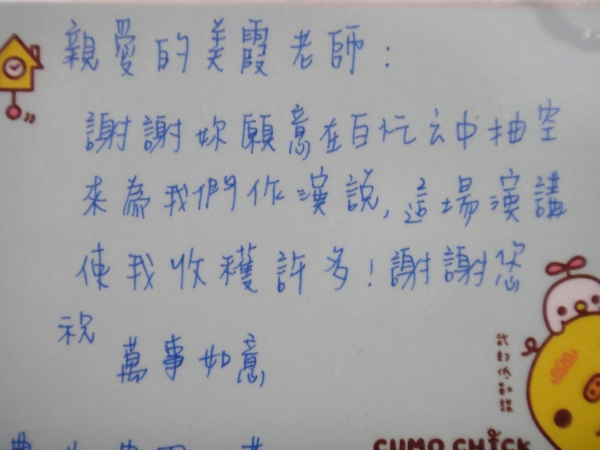 親愛的美霞老師：
謝謝妳願意在百忙之中抽空
來為我們作演說，這場演講
使我收穫許多！謝謝您
祝
萬事如意
CUMO CHICK